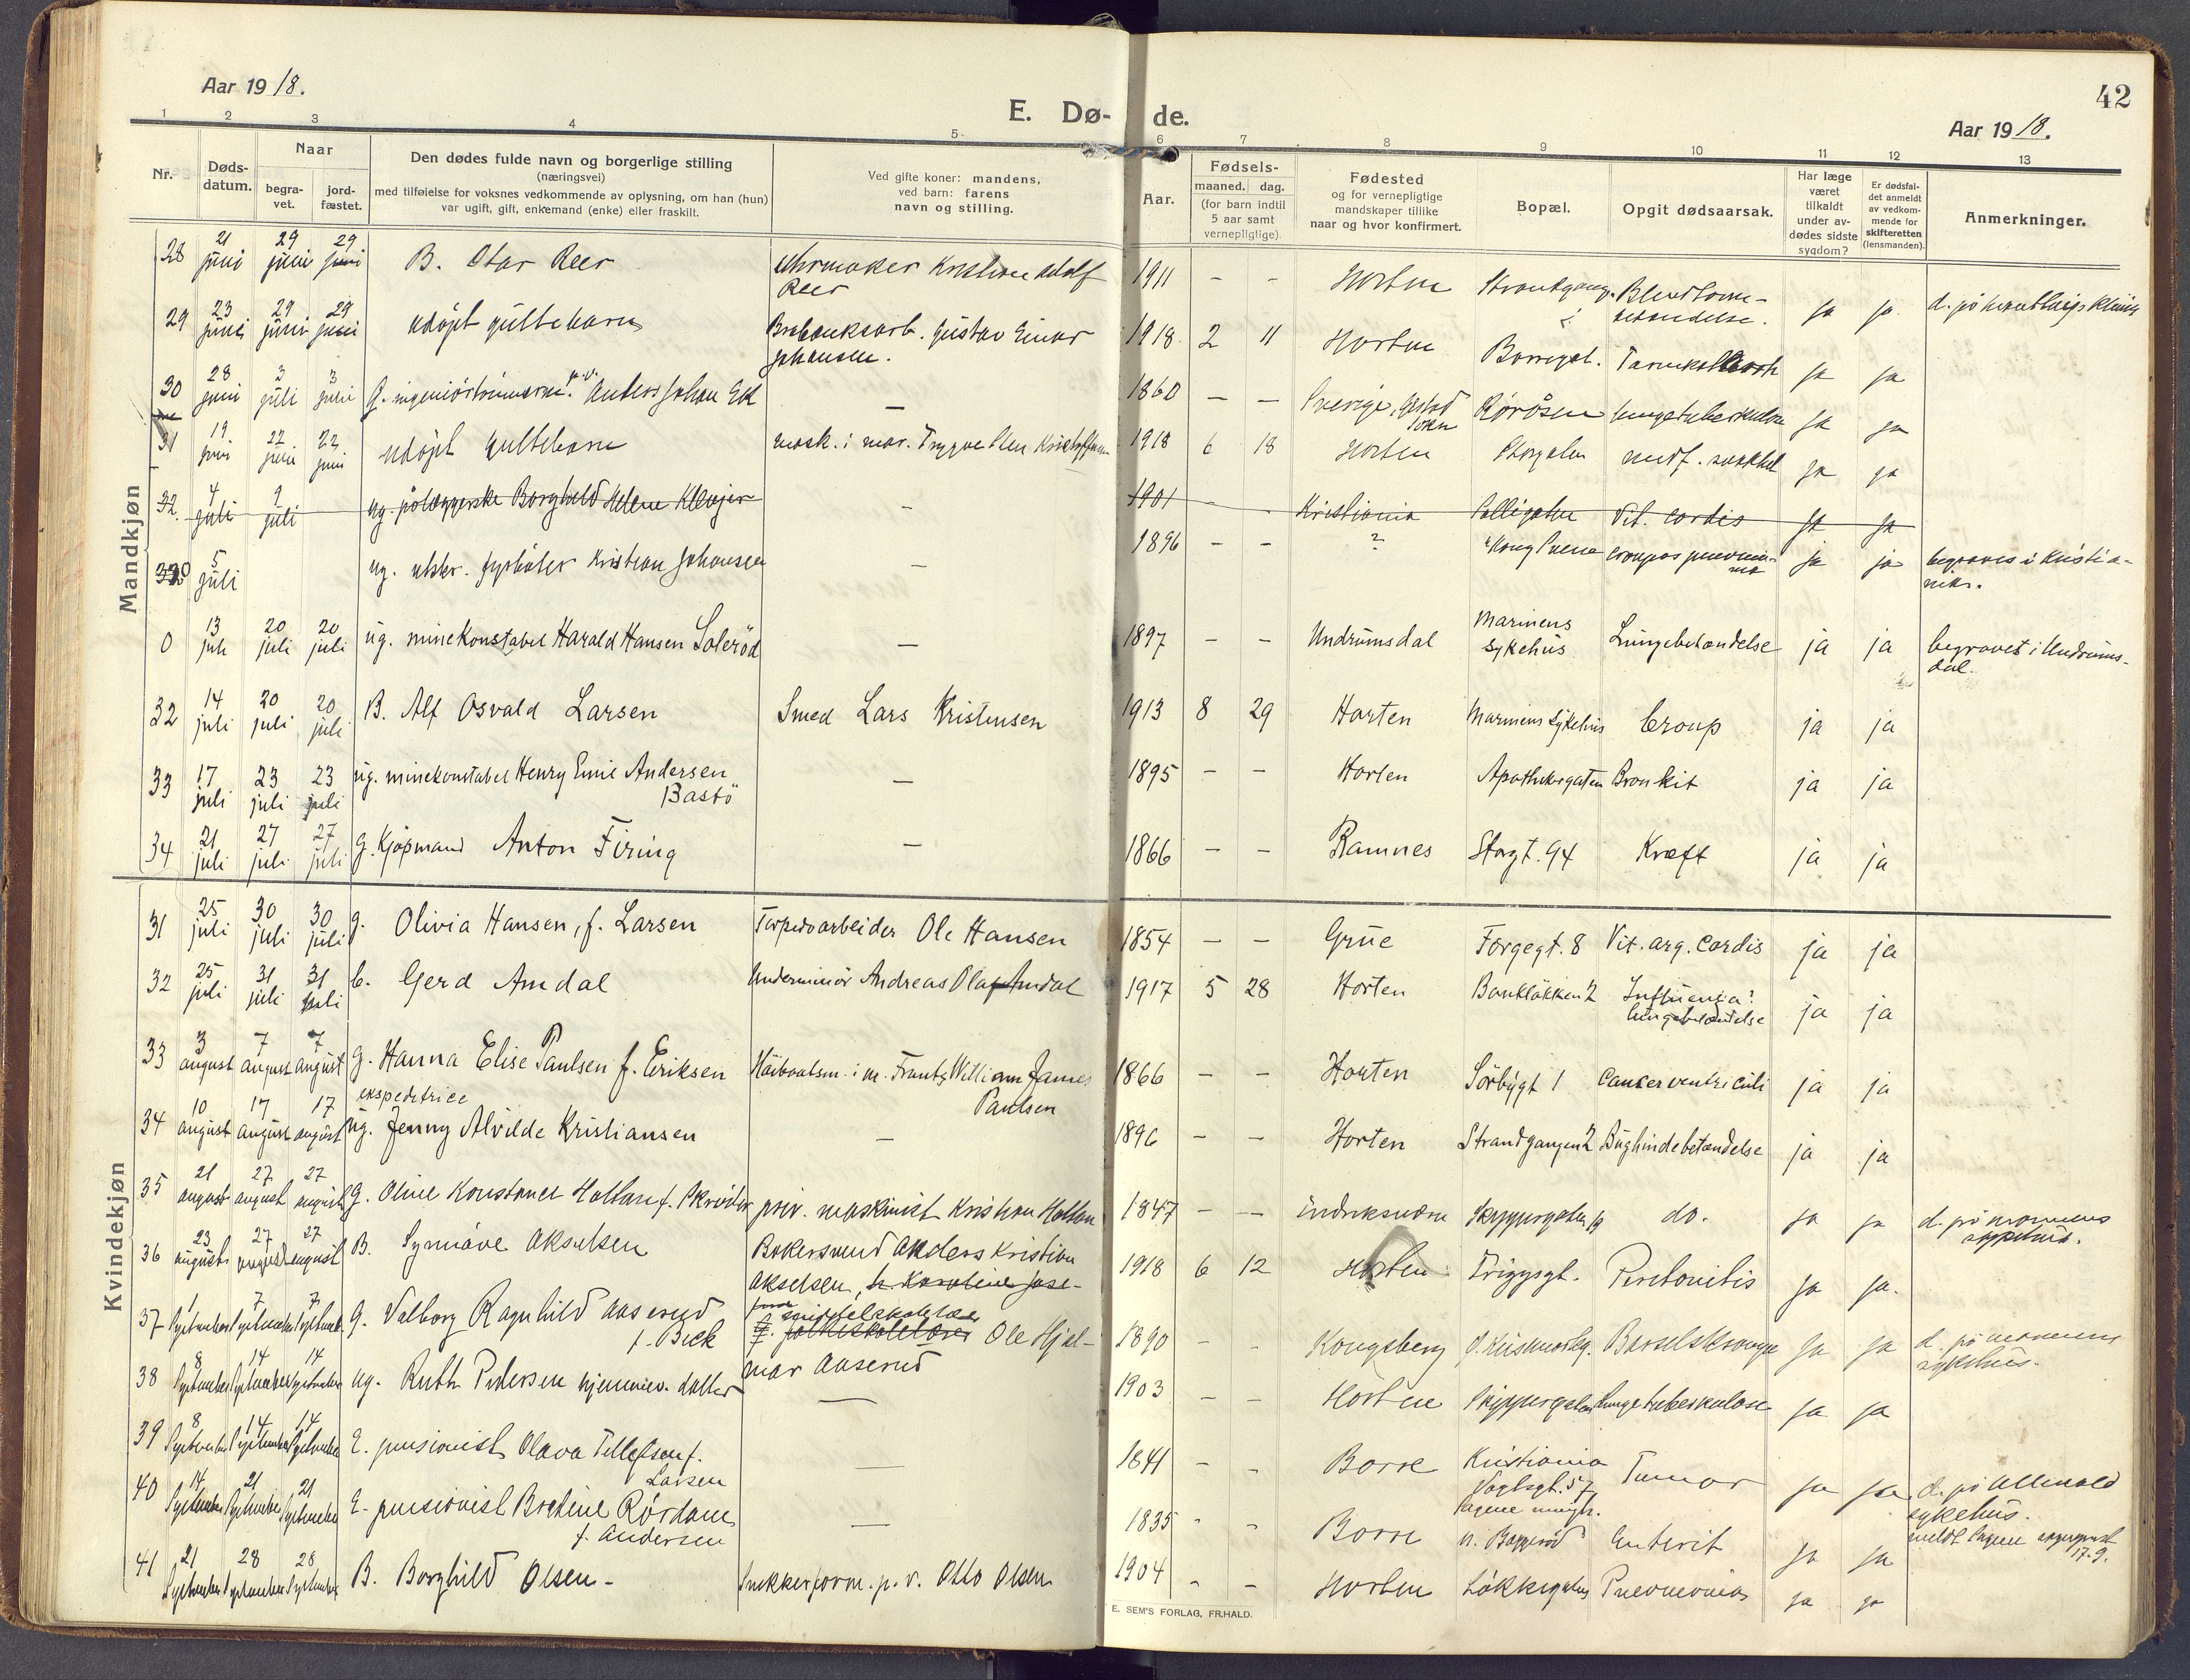 Aar 19 18.
E. Dø- de.
Aar 19 18.
42
1 2 3 4 5 6 7 8 9 10 11 12 13
Nr.
Døds-
datum.
Naar
begra-
vet.
jord-
fæstet.
Den dødes fulde navn og borgerlige stilling
(næringsvei)
med tilføielse for voksnes vedkommende av oplysning, om han (hun)
var ugift, gift, enkemand (enke) eller fraskilt.
Ved gifte koner: mandens,
ved barn: farens
navn og stilling.
Aar.
Fødsels-
maaned. dag.
(for barn indtil
5 aar samt
vernepligtige)
Fødested
og for vernepligtige
mandskaper tillike
naar og hvor konfirmert.
Bopæl.
Opgit dødsaarsak.
Har læge
været
tilkaldt
under av-
dødes sidste
sygdom?
Er dødsfal-
det anmeldt
av vedkom-
mende for
skifteretten
(lensmanden).
Anmerkninger.
Mandkjøn
28 21 juni 29 juni 29 juni B. Otar Reer Uhrmaker Kristian Adolf Reer 1911 - - Horten Blindtarm-betændelse. ja ja
29 23 juni 29 juni 29 juni udøpt guttebarn Gustav Einar Johansen. 1918 2 11 Horten Borregt. ja ja
30 28 juni 3 juli 3 juli G. Anders Johan Ek — 1860 - - Sverige, Rørosen lungetuberkulose ja ja
31 19 juni 22 juni 22 juni udøpt guttebarn mask. i mar. Trygve Olen Kristoffersen 1918 6 18 Horten Storgaten medf. svakhet ja ja
32. 4 juli 9 juli ug. Borghild Helene Klevjer - 1901 - - Kristiania Vit. cordis ja ja
0 5 juli ug. fyrbøter Kristian Johansen — 1896 - - ? "Kong Sverre" croupøs pneumonia ja ja begraves i Kristi a-
0 13 juli 20 juli 20 juli ug. minekonstabel Harald Hansen Solerød — 1897 - - Undrumsdal Marinens sykehus Lungebetændelse ja ja begravet i Undrums-dal.
32 14 juli 20 juli 20 juli B. Alf Osvald Larsen Smed Lars Kristensen 1913 8 29 Horten Marinens Sykehus Croup ja ja
33 17 juli 23 juli 23 juli ug. minekonstabel Henry Emil Andersen Bastö — 1895 - - Horten Apothekergaten Bronkit ja ja
34 21 juli 27 juli 27 juli g. Kjøpmand Anton Firing — 1866 - - Ramnes Storgt. 94 Kræft ja ja
Kvindekjøn
31 25 juli 30 juli 30 juli g. Olivia Hansen, f. Larsen Torpedoarbeider Ole Hansen 1854 - - Grue Forgegt. 8 Vit. arg. cordis ja ja
32 25 juli 31 juli 31 juli b. Gerd Amdal Underminør Andreas Olaf Amdal 1917 5 28 Horten Bankløkken 2 Influenza? lungebetændelse ja ja
33 3 august 7 august 7 august g. Hanna Elise Paulsen f. Eriksen Høibaatsm. i m. Frantz William James Paulsen 1866 - - Horten Sørbygt 1 Cancer ventriculi ja ja
34 10 august 17 august 17 august ekspeditrice ug. Jenny Alvilde Kristiansen — 1896 - - Horten Strandgangen 2 Bughindebetændelse ja ja
35 21 august 27 august 27 august G. Oline Konstance Holtan f. Skrøder priv. maskinist Kristian Holtan 1847 - - Skippergaten do. ja ja d. på marinens sykehus.
36 23 august 27 august 27 august B. Synnøve Akselsen Bakersvend Anders Kristian Akselsen, 1918 6 12 Horten Friggsgt. Peritonitis ja ja.
37 1 September 7 September 7 September g. Valborg Ragnhild Aaserud f. Bick f. folkeskolelærer Ole Hjal-mar Aaserud 1890 - - Kongsberg Barselskrampe ja ja d. på marinens sykehus.
38 8 September 14 September 14 September ug. Ruth Pedersen hjemmev. datter — 1903 - - Horten Skippergaten lungetuberkulose ja ja
39 8 September 14 September 14 September E. pensionist Olava Tellefsen f. Larsen — 1841 - - Borre Kristiania Vogtsgt. 57 Tumor ja ja d. på Ullevold sykehus.
40 14 September 21 September 21 September E. pensionist Bredine Rørdam f. Andersen — 1835 - - Borre Enterit ja ja 17.9.
41 21 September 28 September 28 September B. Borghild Olsen - Snekkerform. p. v. Otto Olsen 1904 - - Horten Løkkegaten Pneumonia ja ja
E. SEM'S FORLAG, FR.HALD.